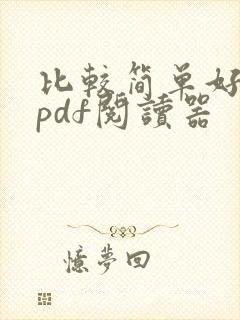 比较简单好
pdf閱讀器
憶夢回